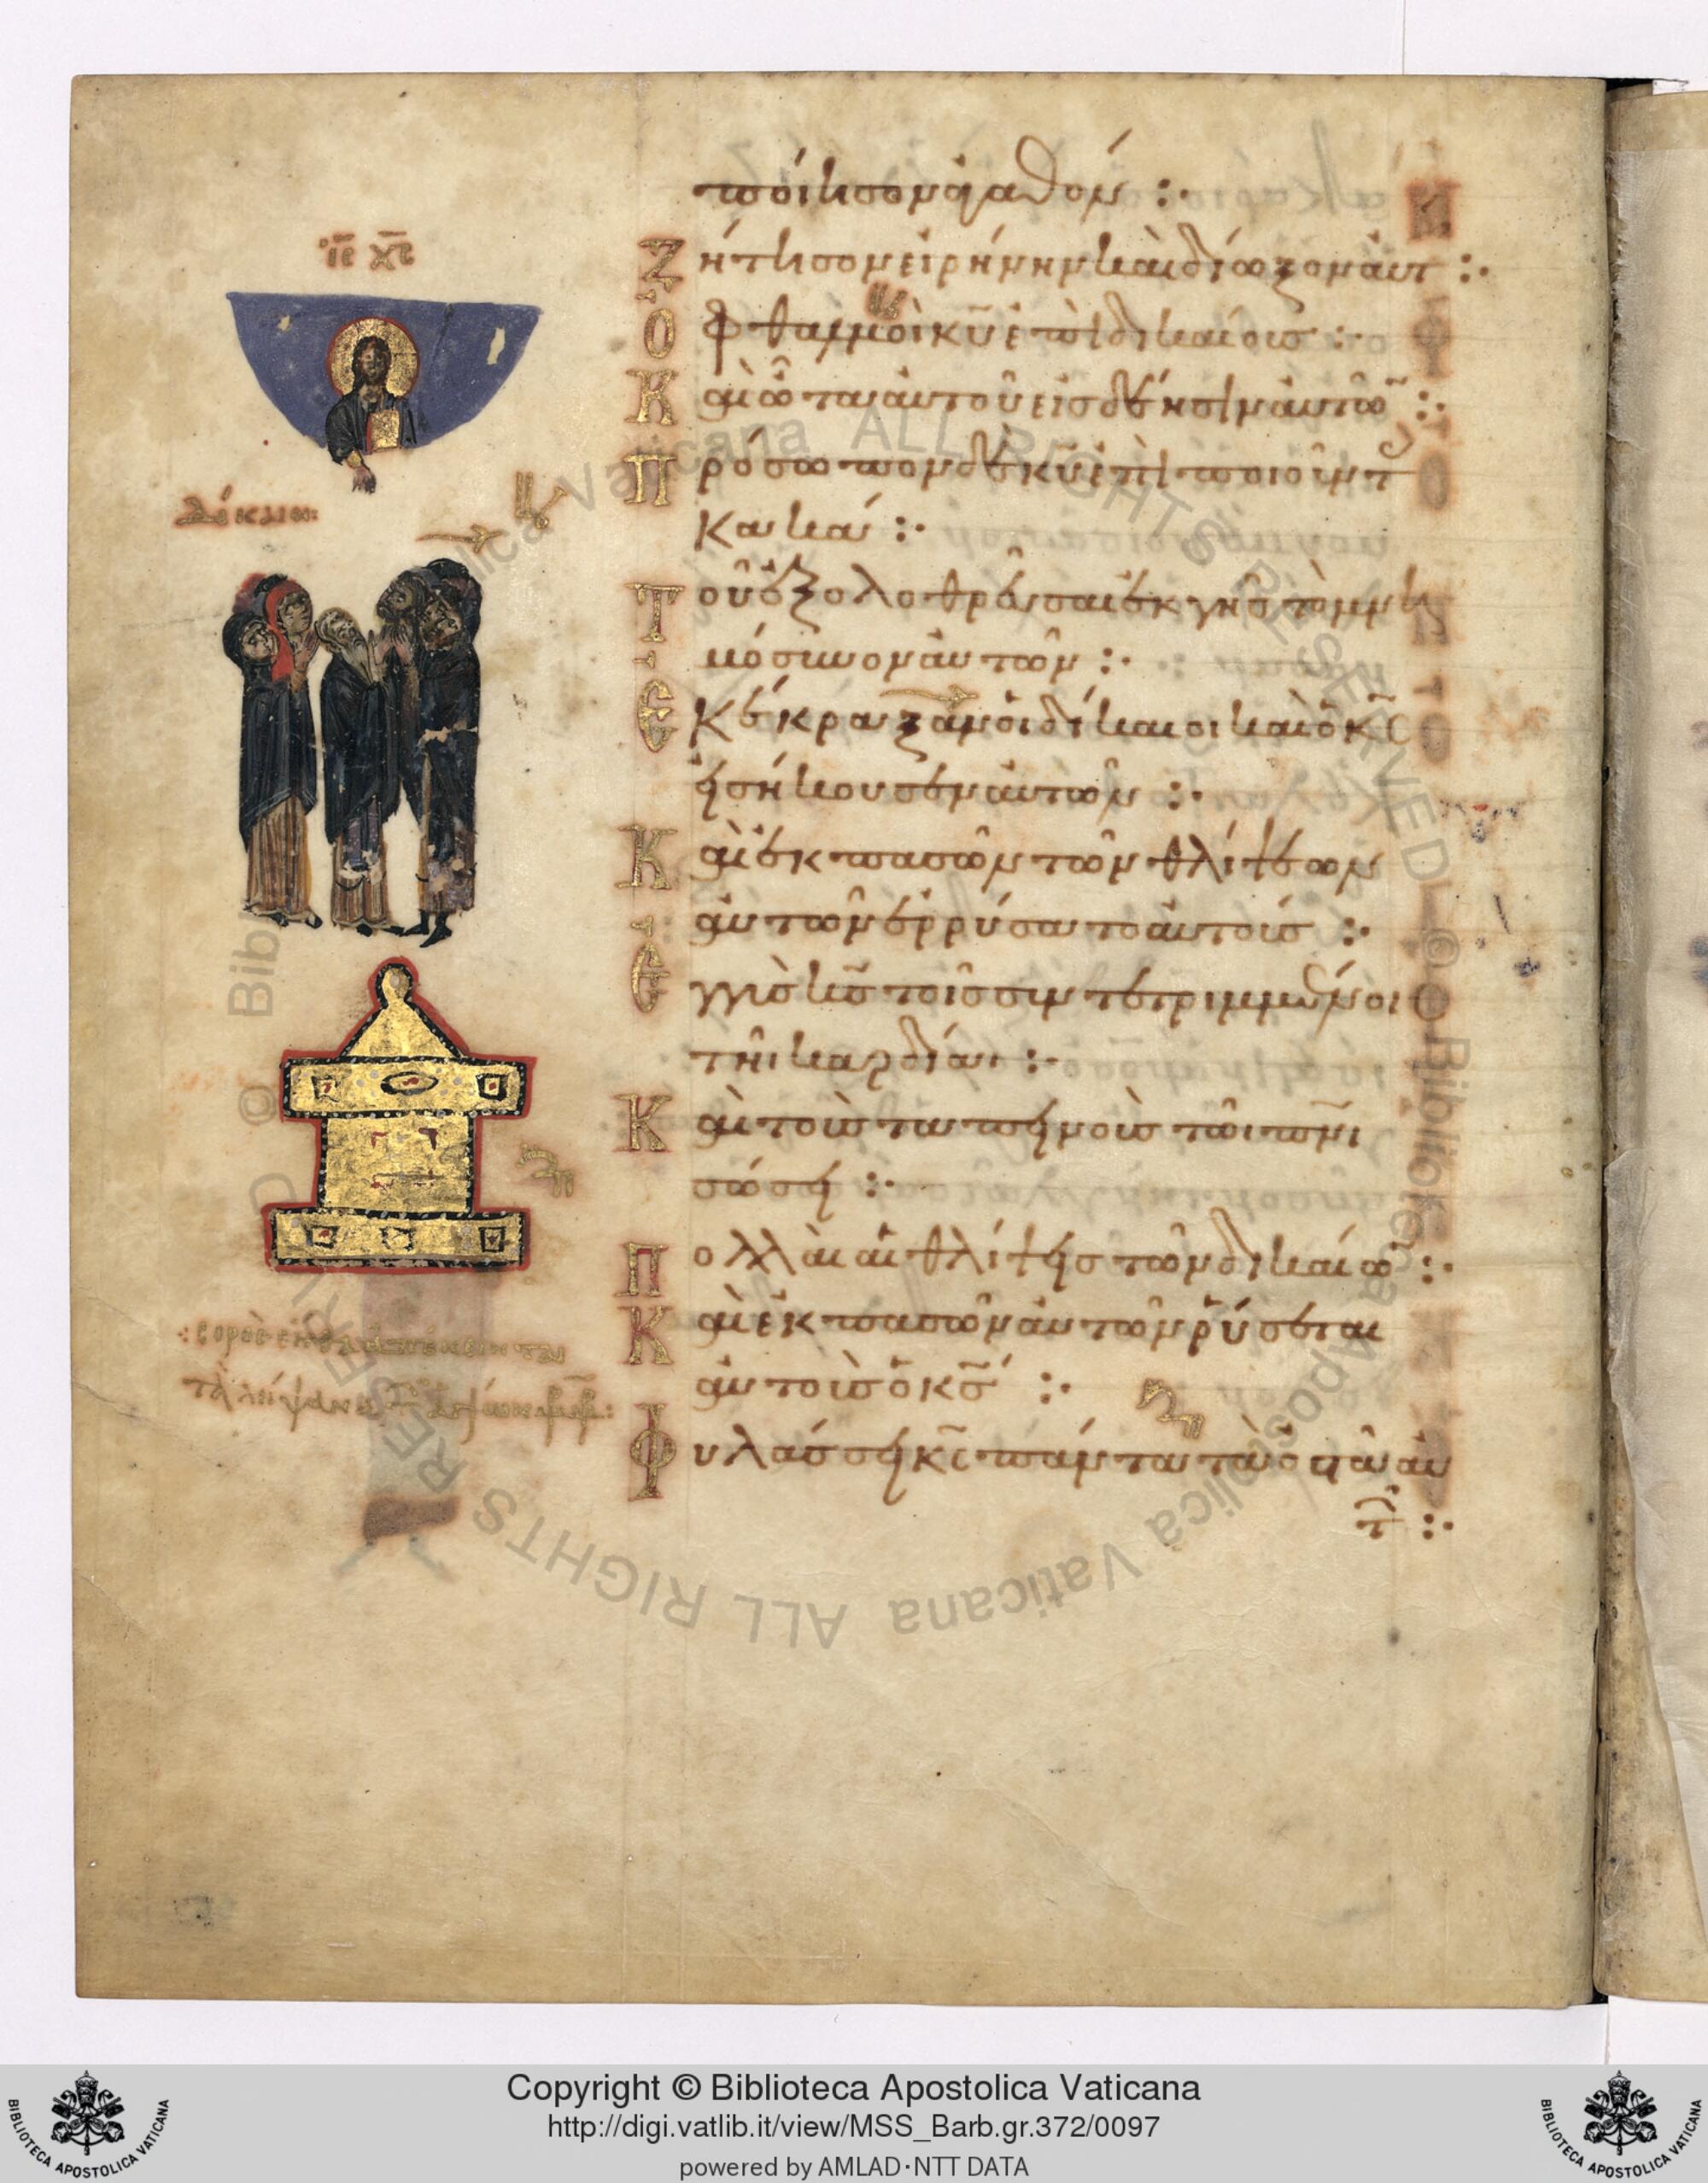 ποίησον ἀγαθόν :·
Ζήτησον εἰρήνην καὶ δίωξον αὐτ :·
Ὀφθαλμοὶ κῡ ἐπὶ δικαίους :·
Καὶ ὦτα αὐτοῦ εἰς δέησιν αὐτῶ̃ :·
Πρόσωπον δὲ κῡ ἐπὶ ποιοῦντ
κακά :·
Τοῦ ἐξολοθρεῦσαι ἐκ γῆς τὸ μνη
μόσυνον αὐτῶν :·
Ἐκέκραξαν οἱ δίκαιοι καὶ ὁ κς̄
εἰσήκουσεν αὐτῶν :·
Καὶ ἐκ πασῶν τῶν θλίψεων
αὐτῶν ἐρρύσατο αὐτούς :·
Ἐγγὺς κς̄ τοῖς συντετριμμένοι
τὴν καρδίαν :·
Καὶ τοὺς ταπεινοὺς τῶι πνι
σώσει :·
Πολλαὶ αἱ θλίψεις τῶν δικαίω :·
Καὶ ἐκ πασῶν αὐτῶν ῥύσεται
αὐτοὺς ὁ κς̄ :·
Φυλάσσει κς̄ πάντα τὰ ὀστᾶ αὐ
τ :·
ις̄ χς̄
δίκαιοι
τὰ λείψανα
Copyright © Biblioteca Apostolica Vaticana
http://digi.vatlib.it/view/MSS_Barb.gr.372/0097
powered by AMLAD·NTT DATA
BIBLIOTECA APOSTOLICA VATICANA
BIBLIOTECA APOSTOLICA VATICANA
© Biblioteca Apostolica Vaticana ALL RIGHTS RESERVED